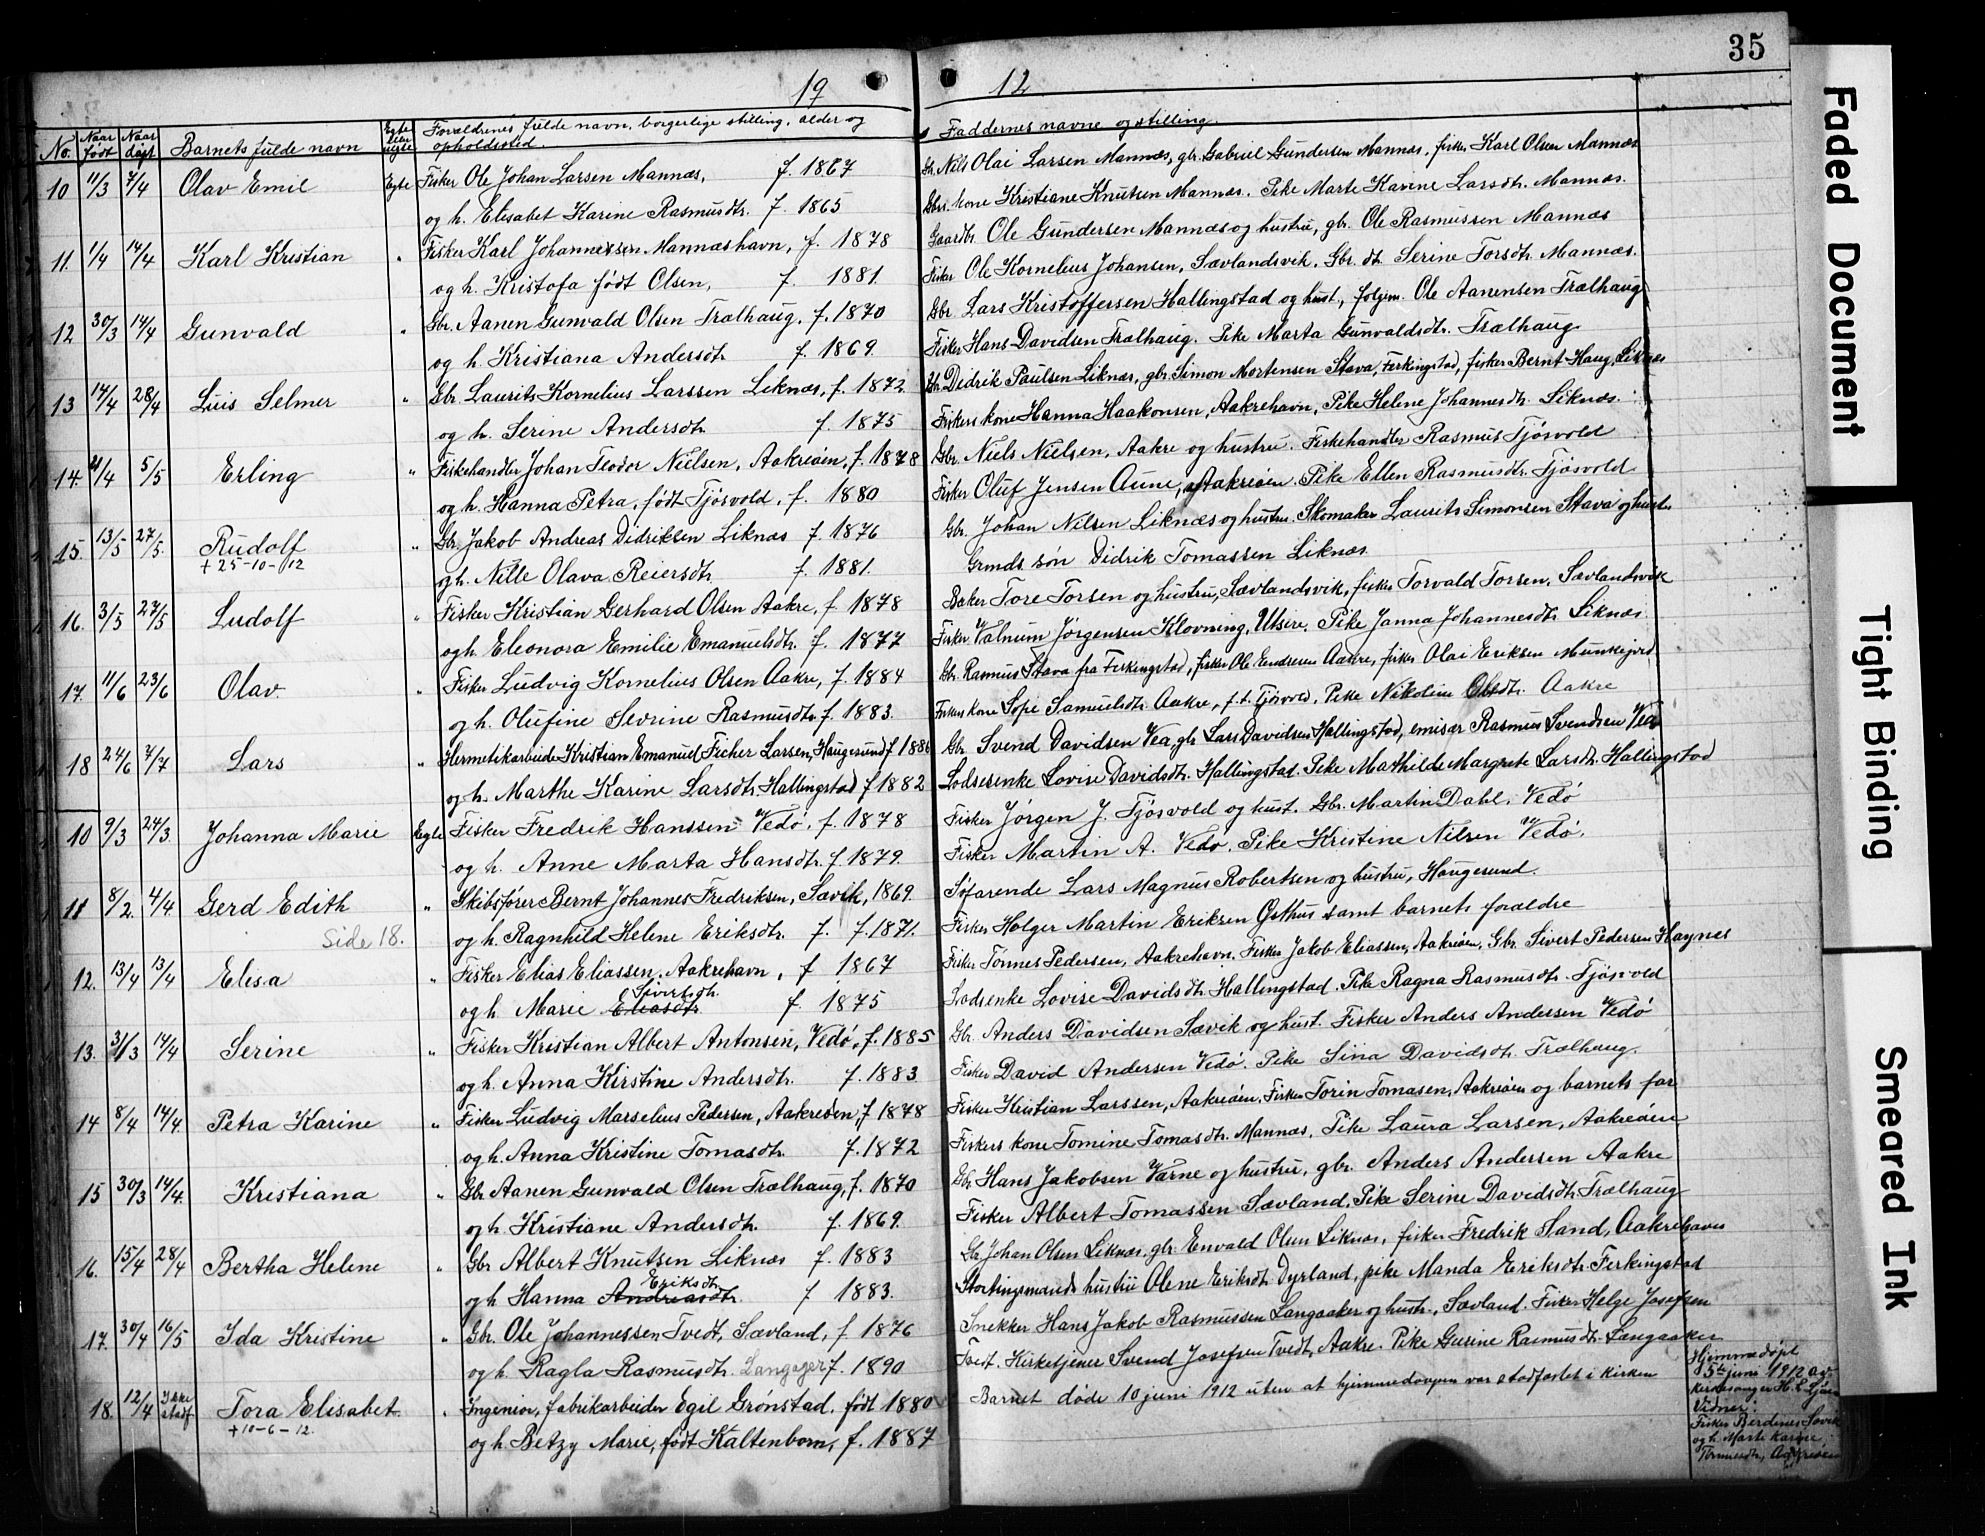 35
19 12
No. Naar født Naar døpt Barnets fulde navn Egte eller uegte Forældrenes fulde navn, borgerlige stilling, alder og opholdssted. Faddernes navne og stilling.
10 11/3 7/4 Olav Emil Egte Fisker Ole Johan Larsen Mannæs, f. 1867 Gbr. Nils Olai Larsen Mannæs, gbr. Gabriel Gundersen Mannæs, fisker Karl Olsen Mannæs
og h. Elisabet Karine Rasmusdtr. f. 1865 Gbrs. kone Kristiane Knutsen Mannæs. Pike Marte Karine Larsdtr. Mannæs.
11. 1/4 14/4 Karl Kristian " Fisker Karl Johannessen Mannæshavn, f. 1878 Gaardbr. Ole Gundersen Mannæs og hustru, gbr. Ole Rasmussen Mannæs
og h. Kristofa født Olsen, f. 1881. Fisker Ole Kornelius Johansen, Sævlandsvik, Gbr. dtr. Serine Torsdtr. Mannæs.
12 30/3 14/4 Gunvald " Gbr. Aanen Gunvald Olsen Trælhaug, f. 1870 Gbr. Lars Kristoffersen Hallingstad og hust., følgem. Ole Aanensen Trælhaug
og h. Kristiana Andersdtr f. 1869. Fisker Hans Davidsen Trælhaug. Pike Marta Gunvaldsdtr. Trælhaug
13 17/4 28/4 Luis Selmer " Gbr. Laurits Kornelius Larssen Liknæs, f. 1872. Gbr. Didrik Paulsen Liknæs, gbr. Simon Mortensen Stava, Ferkingstad, fisker Bernt Haug, Liknæs
og h. Serine Andersdtr f. 1875 Fiskers kone Hanna Haakonsen, Aakrehavn, Pike Helene Johannesdtr. Liknæs.
14. 21/4 5/5 Erling " Fiskehandler Johan Teodor Nielsen, Aakreøen, f. 1878 Gbr. Niels Nielsen, Aakre og hustru. Fiskehandler Rasmus Tjøsvold
og h. Hanna Petra, født Tjøsvold, f. 1880 Fisker Oluf Jensen Aune, Aakreøen. Pike Ellen Rasmusdtr. Tjøsvold
15. 13/5 27/5. Rudolf " Gbr. Jakob Andreas Didriksen Liknæs f. 1876 Gbr. Johan Nilsen Liknæs og hustru. Skomaker Laurits Simonsen Stava og hustru
+ 25-10-12 og h. Nille Olava Reiersdtr f. 1881. Grmds. søn Didrik Tomassen Liknæs.
16. 3/5 27/5 Ludolf " Fisker Kristian Gerhard Olsen Aakre, f. 1878 Baker Tore Torsen og hustru, Sævlandsvik, fisker Torvald Torsen, Sævlandsvik
og h. Eleonora Emilie Emanuelsdtr. f. 1877 Fisker Valnum Jørgensen Klovning, Utsire. Pike Janna Johannesdtr. Liknæs.
17. 11/6 23/6 Olav " Fisker Ludvig Kornelius Olsen Aakre, f. 1884 Gbr. Rasmus Stava fra Ferkingstad, fisker Ole Endresen Aakre, fisker Olai Eriksen Munkejord
og h. Olufine Sevrine Rasmusdtr. f. 1883. Fiskers kone Sofie Samuelsdtr. Aakre, f. t. Tjøsvold, Pike Nikoline Olsdtr. Aakre
18 24/6 7/7 Lars " Hermetikarbeider Kristian Emanuel Fischer Larsen, Haugesund f. 1886 Gbr. Svend Davidsen Vea, gbr. Lars Davidsen Hallingstad, emisær Rasmus Svendsen Vea
og h. Marthe Karine Larsdtr. Hallingstad f 1882 Lodsenke Lovise Davidsdtr. Hallingstad. Pike Mathilde Margrete Larsdtr. Hallingstad
10 9/3 24/3. Johanna Marie Egte Fisker Fredrik Hanssen Vedø. f. 1878 Fisker Jørgen J. Tjøsvold og hust. Gbr. Martin Dahl, Vedø
og h. Anne Marta Hansdtr. f. 1879. Fisker Martin A. Vedø. Pike Kristine Nilsen Vedø.
11 8/2. 4/4. Gerd Edith " Skibsfører Bernt Johannes Fredriksen, Sævik, 1869. Søfarende Lars Magnus Robertsen og hustru, Haugesund.
Side 18. og h. Ragnhild Helene Eriksdtr. f. f. 1871. Fisker Holger Martin Eriksen Østhus samt barnets forældre
12. 13/4 13/4 Elisa " Fisker Elias Eliassen. Aakrehavn, f 1867 Fisker Tønnes Pedersen, Aakrehavn. Fisker Jakob Eliassen, Aakreøen, Gbr. Sivert Pedersen Høynes
Sivertsdtr.
og h. Marie Eliasdtr. f. 1875 Lodsenke Lovise Davidsdtr. Hallingstad. Pike Ragna Rasmusdtr. Tjøsvold
13. 31/3 14/4 Serine " Fisker Kristian Albert Antonsen, Vedø, f. 1885 Gbr. Anders Davidsen Sævik og hust. Fisker Anders Andersen Vedø
og h. Anna Kirstine Andersdtr. f. 1883 Fisker David Andersen Vedø. Pike Sina Davidsdtr. Trælhaug.
14 8/4 14/4. Petra Karine " Fisker Ludvig Marselius Pedersen, Aakreøen, f 1878 Fisker Kristian Larssen, Aakreøen, Fisker Torin Tomasen, Aakreøen og barnets far
og h. Anna Kristine Tomasdtr. f. 1872 Fiskers kone Tomine Tomasdtr. Mannæs. Pike Laura Larsen, Aakreøen
15 30/3 14/4. Kristiana " Gbr Aanen Gunvald Olsen Trælhaug, f. 1870 Gbr Hans Jakobsen Varne og hustru, gbr. Anders Andersen Aakre
og h. Kristiane Andersdtr. f. 1869. Fisker Albert Tomassen Sævland. Pike Serine Davidsdtr. Trælhaug
16. 15/4 28/4 Bertha Helene " Gbr Albert Knutsen Liknæs f. 1883 Gbr. Johan Olsen Liknæs, gbr. Envald Olsen Liknæs, fisker Fredrik Sand, Aakrehavn
Eriksdtr.
og h Hanna Andreasdtr. f 1883. Stortingsmands hustru Olene Eriksdtr. Dyrland, pike Manda Eriksdtr. Ferkingstad
17. 30/4 16/5 Ida Kristine " Gbr. Ole Johannessen Tvedt, Sævland, f 1876 Snekker Hans Jakob Rasmussen Langaaker og hustr., Sævland. Fisker Helge Josefsen
og h. Ragla Rasmusdtr. Langager f. 1890 Tvedt. Kirketjener Svend Josefsen Tvedt, Aakre. Pike Gurine Rasmusdtr. Langaaker
18. 12/4 Ikke stadf. Tora Elisabet. " Ingeniør, fabrikarbeider Egil Grønstad. født 1880 Barnet døde 10 juni 1912 uten at hjemmedaapen var stadfæstet i kirken
+ 10-6-12. og h. Betzy Marie, født Kaltenborn, f. 1887
Hjemmedøpt
5te juni 1912 av
kirkesanger
Vidner:
Fisker Berdines Sævik
og h. Marte Karine
Tønnesdtr, Aakreøen
Faded Document
Tight Binding
Smeared Ink